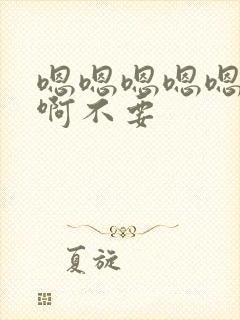 嗯嗯嗯嗯嗯
啊不要
夏旋